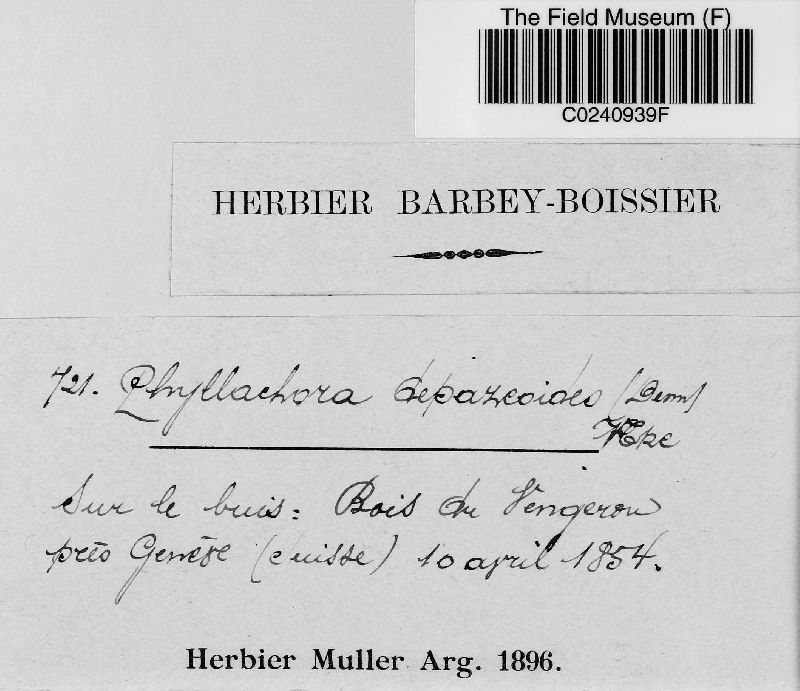 The Field Museum (F)
C0240939F
HERBIER BARBEY-BOISSIER
721. Phyllachora depazeoides (Desm)
Sur le buis: Bois du Vengeron
près Genève (Suisse) 10 avril 1854.
Herbier Muller Arg. 1896.